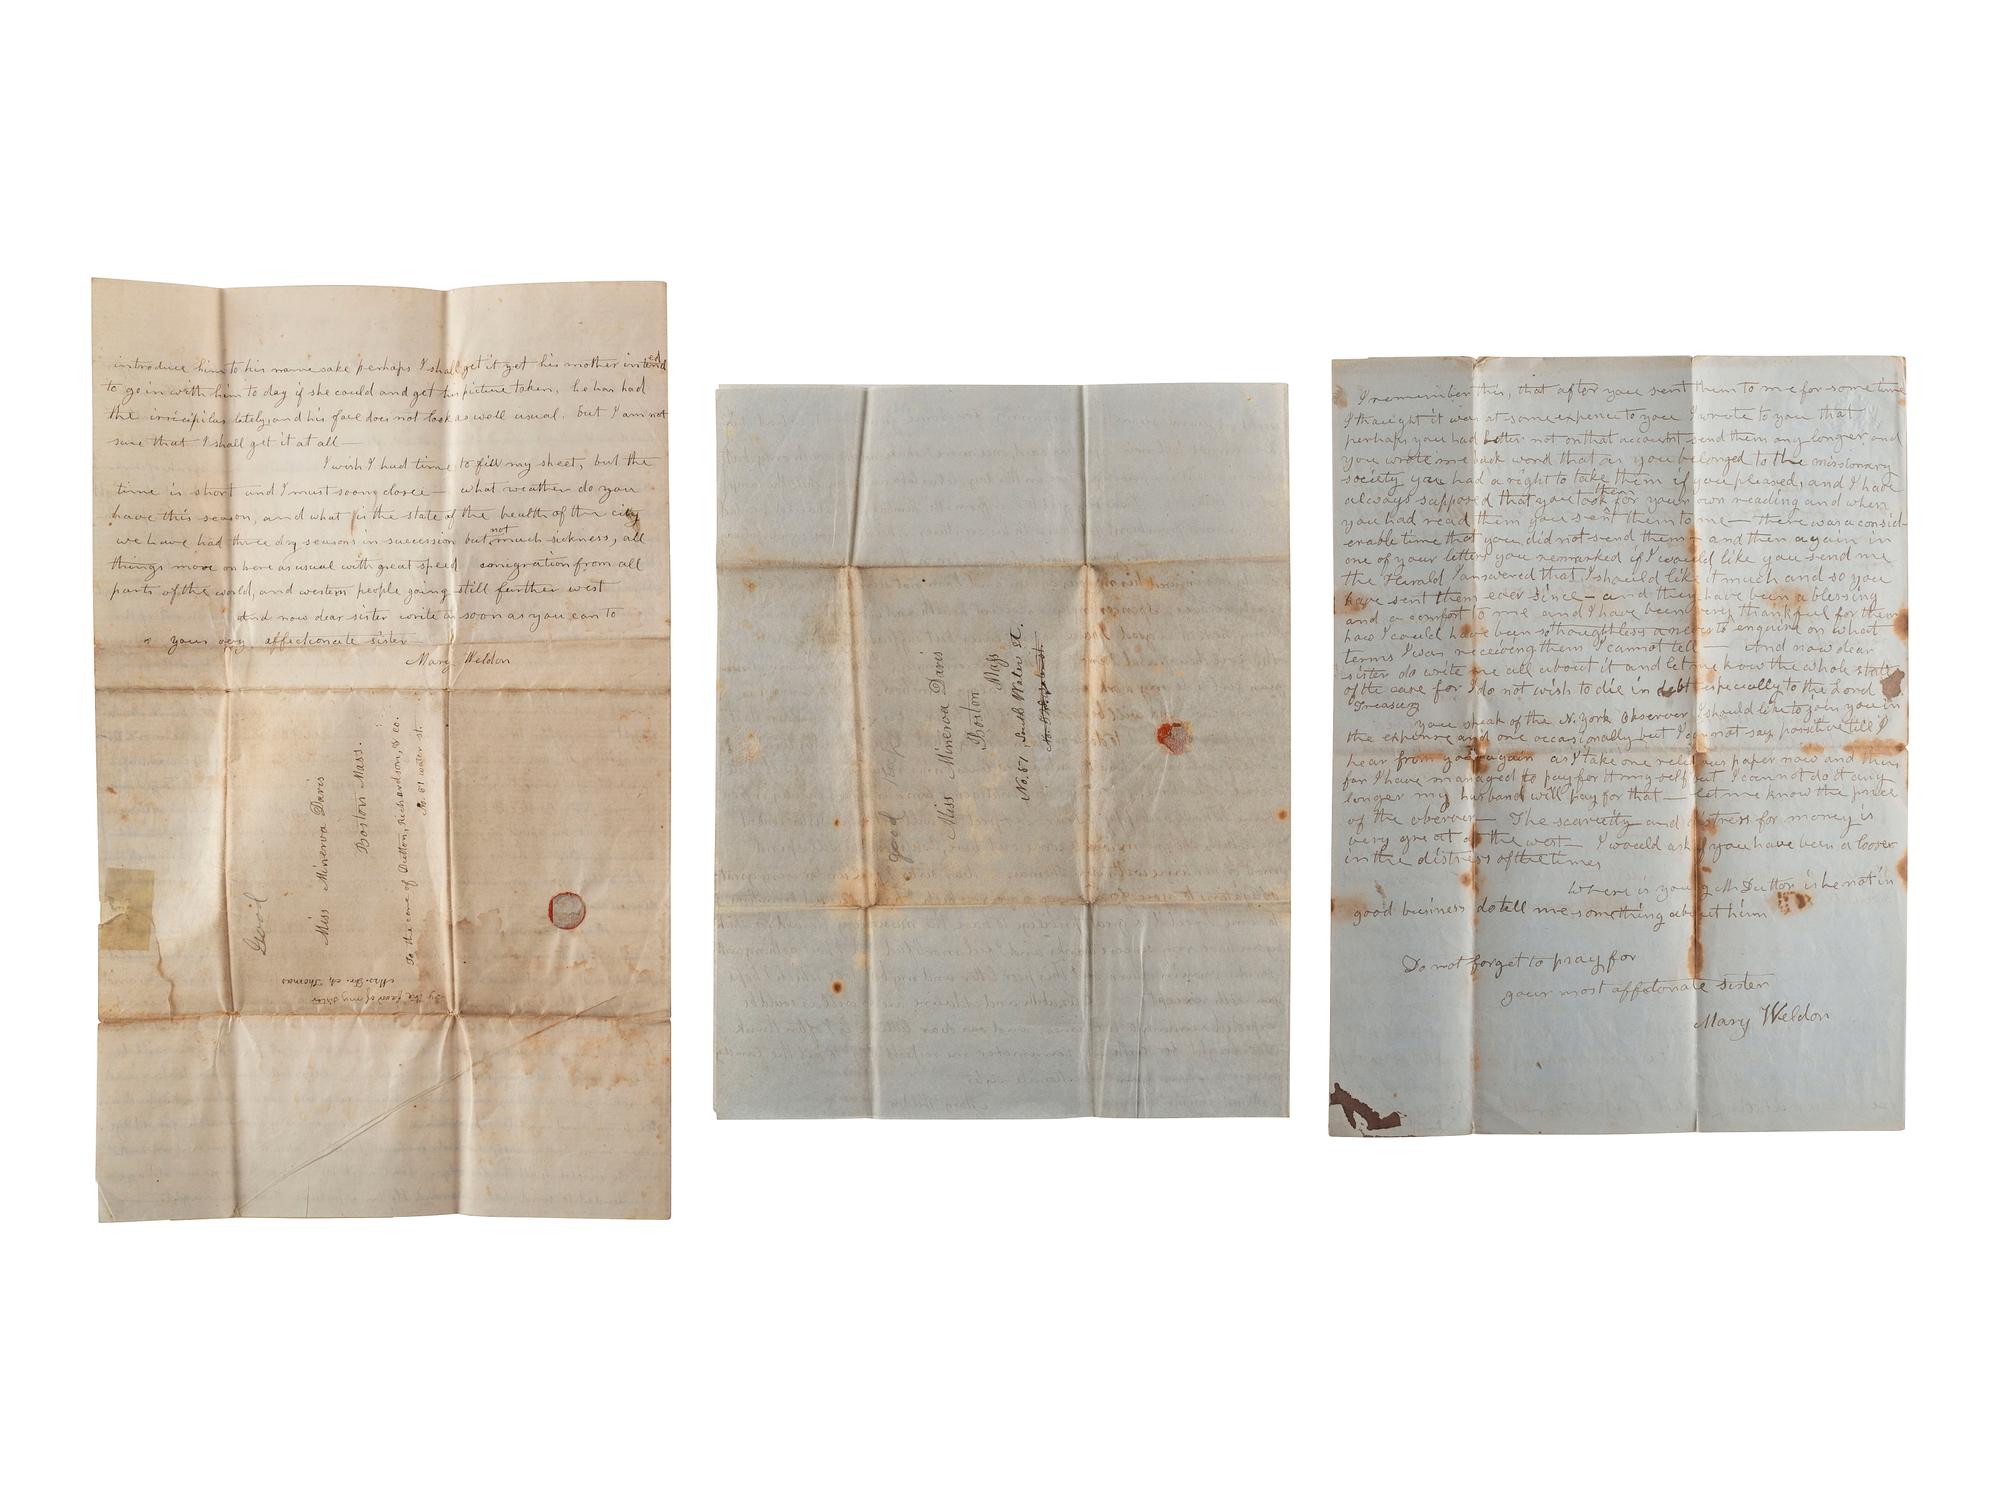 introduce him to his name sake perhaps I shall get it yet his mother intended
to go in with him to day if she could and get his picture taken, he has had
the irricipilus lately, and his face does not look as well usual, but I am not
sure that I shall get it at all —
I wish I had time to fill my sheet, but the
time is short and I must soon close — what weather do you
have this season, and what is the state of the health of the city
we have had three dry seasons in succession but not much sickness, all
things move on here as usual with great speed emigration from all
parts of the world, and western people going still further west
And now dear sister write as soon as you can to
your very affectionate sister —
Mary Weldon
Good
Miss Minerva Davis
Boston Mass.
To the care of Dutton, Richardson, & co.
No. 81 water st.
By the favor of my sister
Mrs. Dr. A, Thomas
good
Miss Minerva Davis
Boston
Mass
No. 51, South Water St.
I remember this, that after you sent them to me for some time
I thought it was at some expence to you I wrote to you that
perhaps you had better not on that account send them any longer, and
you wrote me back word that as you belonged to the missionary
society you had a right to take them if you pleased, and I have
always supposed that you took them for your own reading and when
you had read them you sent them to me — there was a consid-
erable time that you did not send them — and then again in
one of your letters you remarked if I would like you send me
the Herald I answered that I should like it much and so you
have sent them ever since — and they have been a blessing
and a comfort to me and I have been very thankful for them
how I could have been so thoughtless as never to enquire on what
terms I was receiving them I cannot tell — And now dear
sister do write me all about it and let me know the whole state
of the case for I do not wish to die in debt especially to the Lord
Treasury
you speak of the N. York Observer I should like to join you in
the expense and one occasionally but I can not say positive till I
hear from you again as I take one religious paper now and thus
far I have managed to pay for it my self but I can not do it any
longer my husband will pay for that — let me know the price
of the observer — The scarcity and distress for money is
very great at the west — I would ask if you have been a looser
in the distress of the times
Where is young Mr Dutton is he not in
good business do tell me something about him
Do not forget to pray for
your most affetonate sister
Mary Weldon